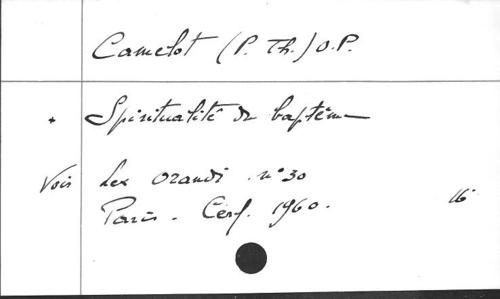 Camelot (P. Th.) O.P.
* Spiritualité du baptême
Voir Lex orandi n° 30
Paris. Cerf. 1960. 16